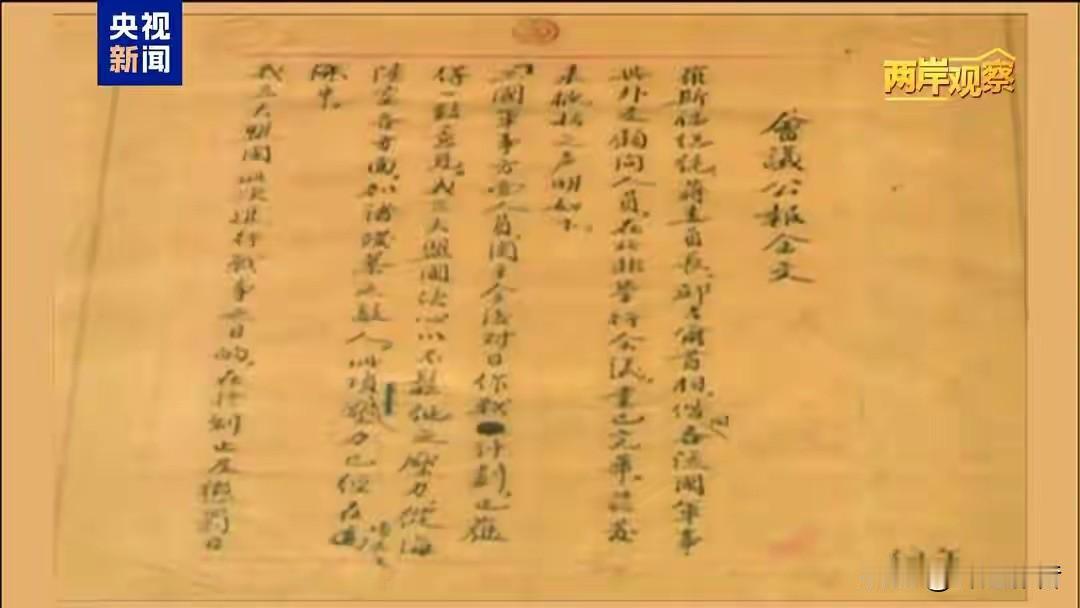 央视
新闻
两岸观察
會議公報全文
羅斯福總統、蔣委員長、邱吉爾首相、偕同各該國軍事
與外交顧問人員，在北非舉行會議，業已完畢，茲發
表概括之声明如下。
三國軍事方面人員，關于今後對日作戰計劃，已獲
得一致意見，我三大盟國決心以不鬆弛之壓力，從海
陸空各方面，加諸殘暴之敵人，此項壓力已經在
中。
我三大盟國此次進行戰爭之目的，在制止及懲罰日